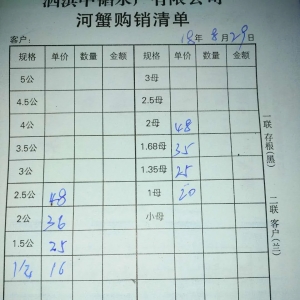 泗洪中储水产有限公司
河蟹购销清单
客户: 18年8月29日
规格 单价 数量 金额 规格 单价 数量 金额
5公 3母
4.5公 2.5母
4公 2母 48
3.5公 1.68母 35
3公 1.35母 25
2.5公 48 1母 20
2公 36 小母
1.5公 25
1/2 16
一联 存根(黑)
二联 客户(兰)